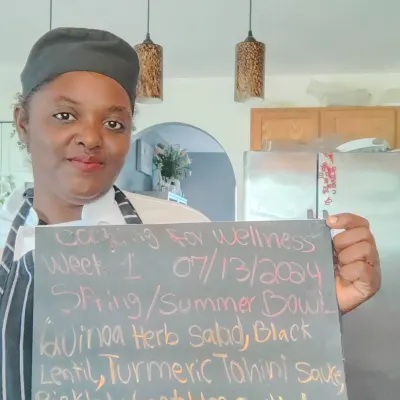 Cooking for Wellness
Week 1 07/13/2024
Spring/Summer Bowl
Quinoa Herb Salad, Black
Lentil, Turmeric Tahini Sauce,